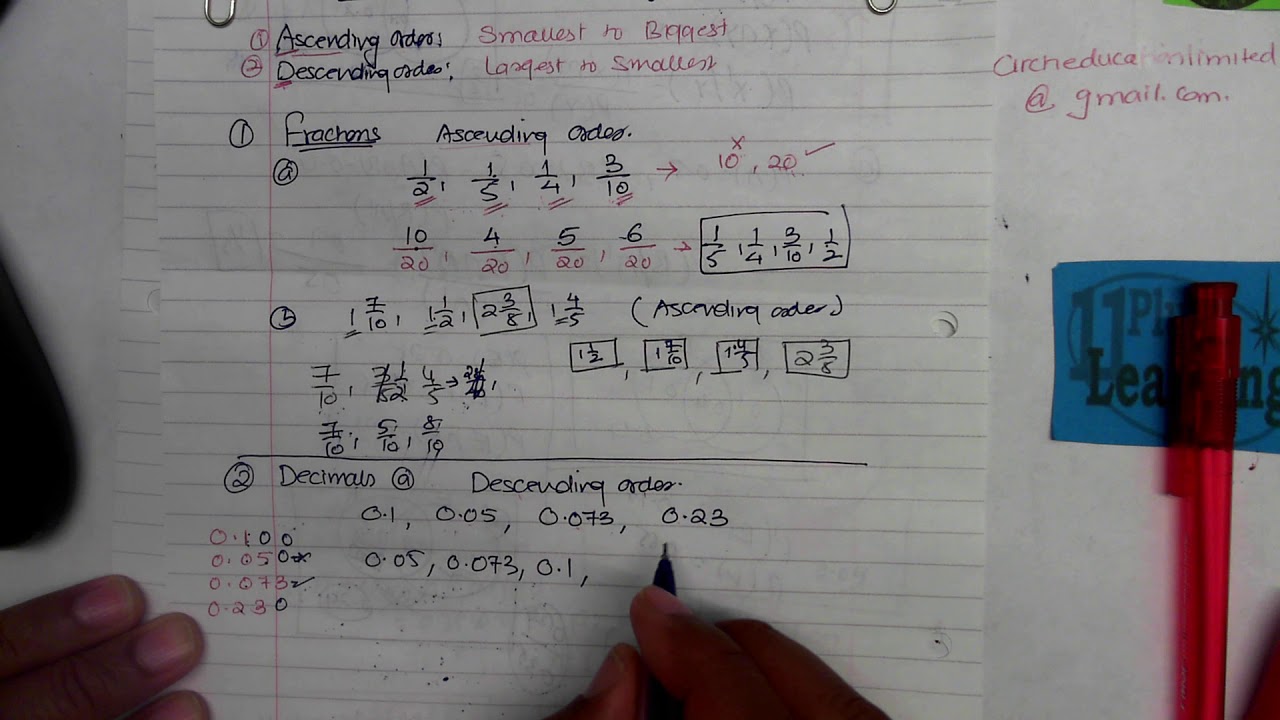 ① Ascending order: Smallest to Biggest
② Descending order: Largest to Smallest
archeduca nlimited
@ gmail.com.
① Fractions Ascending order.
ⓐ 1/2, 1/5, 1/4, 3/10 → 10 x, 20 ✓
10/20, 4/20, 5/20, 6/20 → 1/5, 1/4, 3/10, 1/2
ⓑ 1 7/10, 1 1/2, 2 3/8, 1 4/5 (Ascending order)
1 1/2, 1 7/10, 1 4/5, 2 3/8
7/10, 4/5 →
7/10, 5/10, 8/10
② Decimals ⓐ Descending order.
0.1, 0.05, 0.073, 0.23
0.05, 0.073, 0.1,
0.100
0.050 x
0.073 ✓
0.230
11 Pl
Lea ng